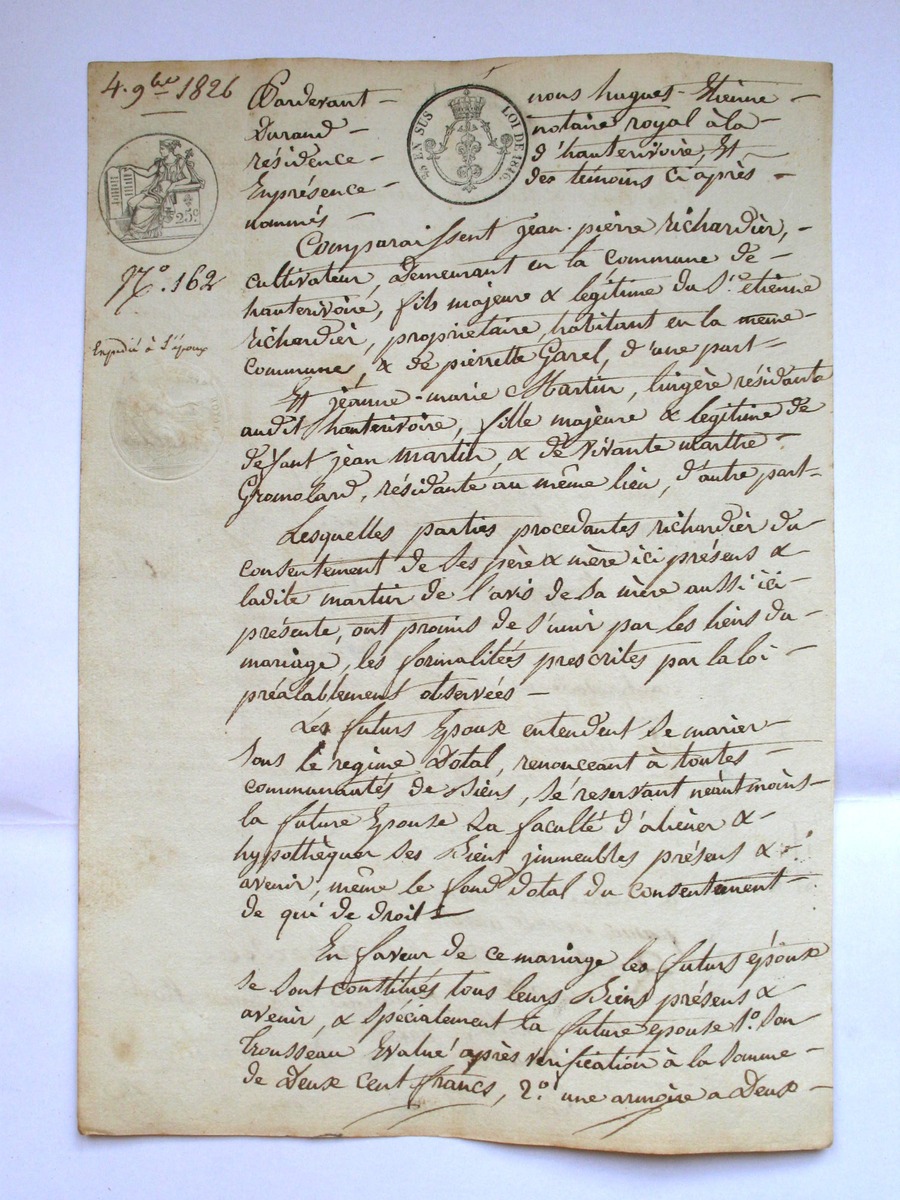 4. 9bre 1826
25c
No. 162
Expédié à l'époux
EN SUS LOI DE 1816.
Pardevant nous hugues-Etienne
Durand notaire royal à la
résidence d'hauterivoire, Et
Enprésence des témoins ci après
nommés
Comparaissent jean-pierre richardier,
cultivateur, demeurant en la commune de
hauterivoire, fils majeure & légitime du Sr. etienne
richardier, propriétaire, habitant en la même
commune, & de pierrette Garel, d'une part
Et jeanne-marie Martin, lingère résidante
audit hauterivoire, fille majeure & legitime de
défunt jean martin & de vivante marthe
Gromolard, résidante au même lieu, d'autre part
Lesquelles parties procedantes richardier du
consentement de ses père & mère ici présens &
ladite martin de l'avis de sa mère aussi ici
présente, ont promis de s'unir par les liens du
mariage, les formalitées prescrites par la loi
préalablement observées
Les futurs Epoux entendent se marier
sous le régime Dotal, renonceant à toutes
communautés de Biens, se réservant néantmoins
la future Epouse La faculté d'aliéner &
hypothèquer ses Biens jmmeubles présens & à
avenir, même le fond dotal du consentement
de qui de droit
En faveur de ce mariage les futurs époux
se sont constitués tous leurs Biens présens &
avenir, & spécialement la future epouse 1o. son
Trousseau Evalué après vérification à la somme
de Deux cent francs, 2o. une armoire a Deux